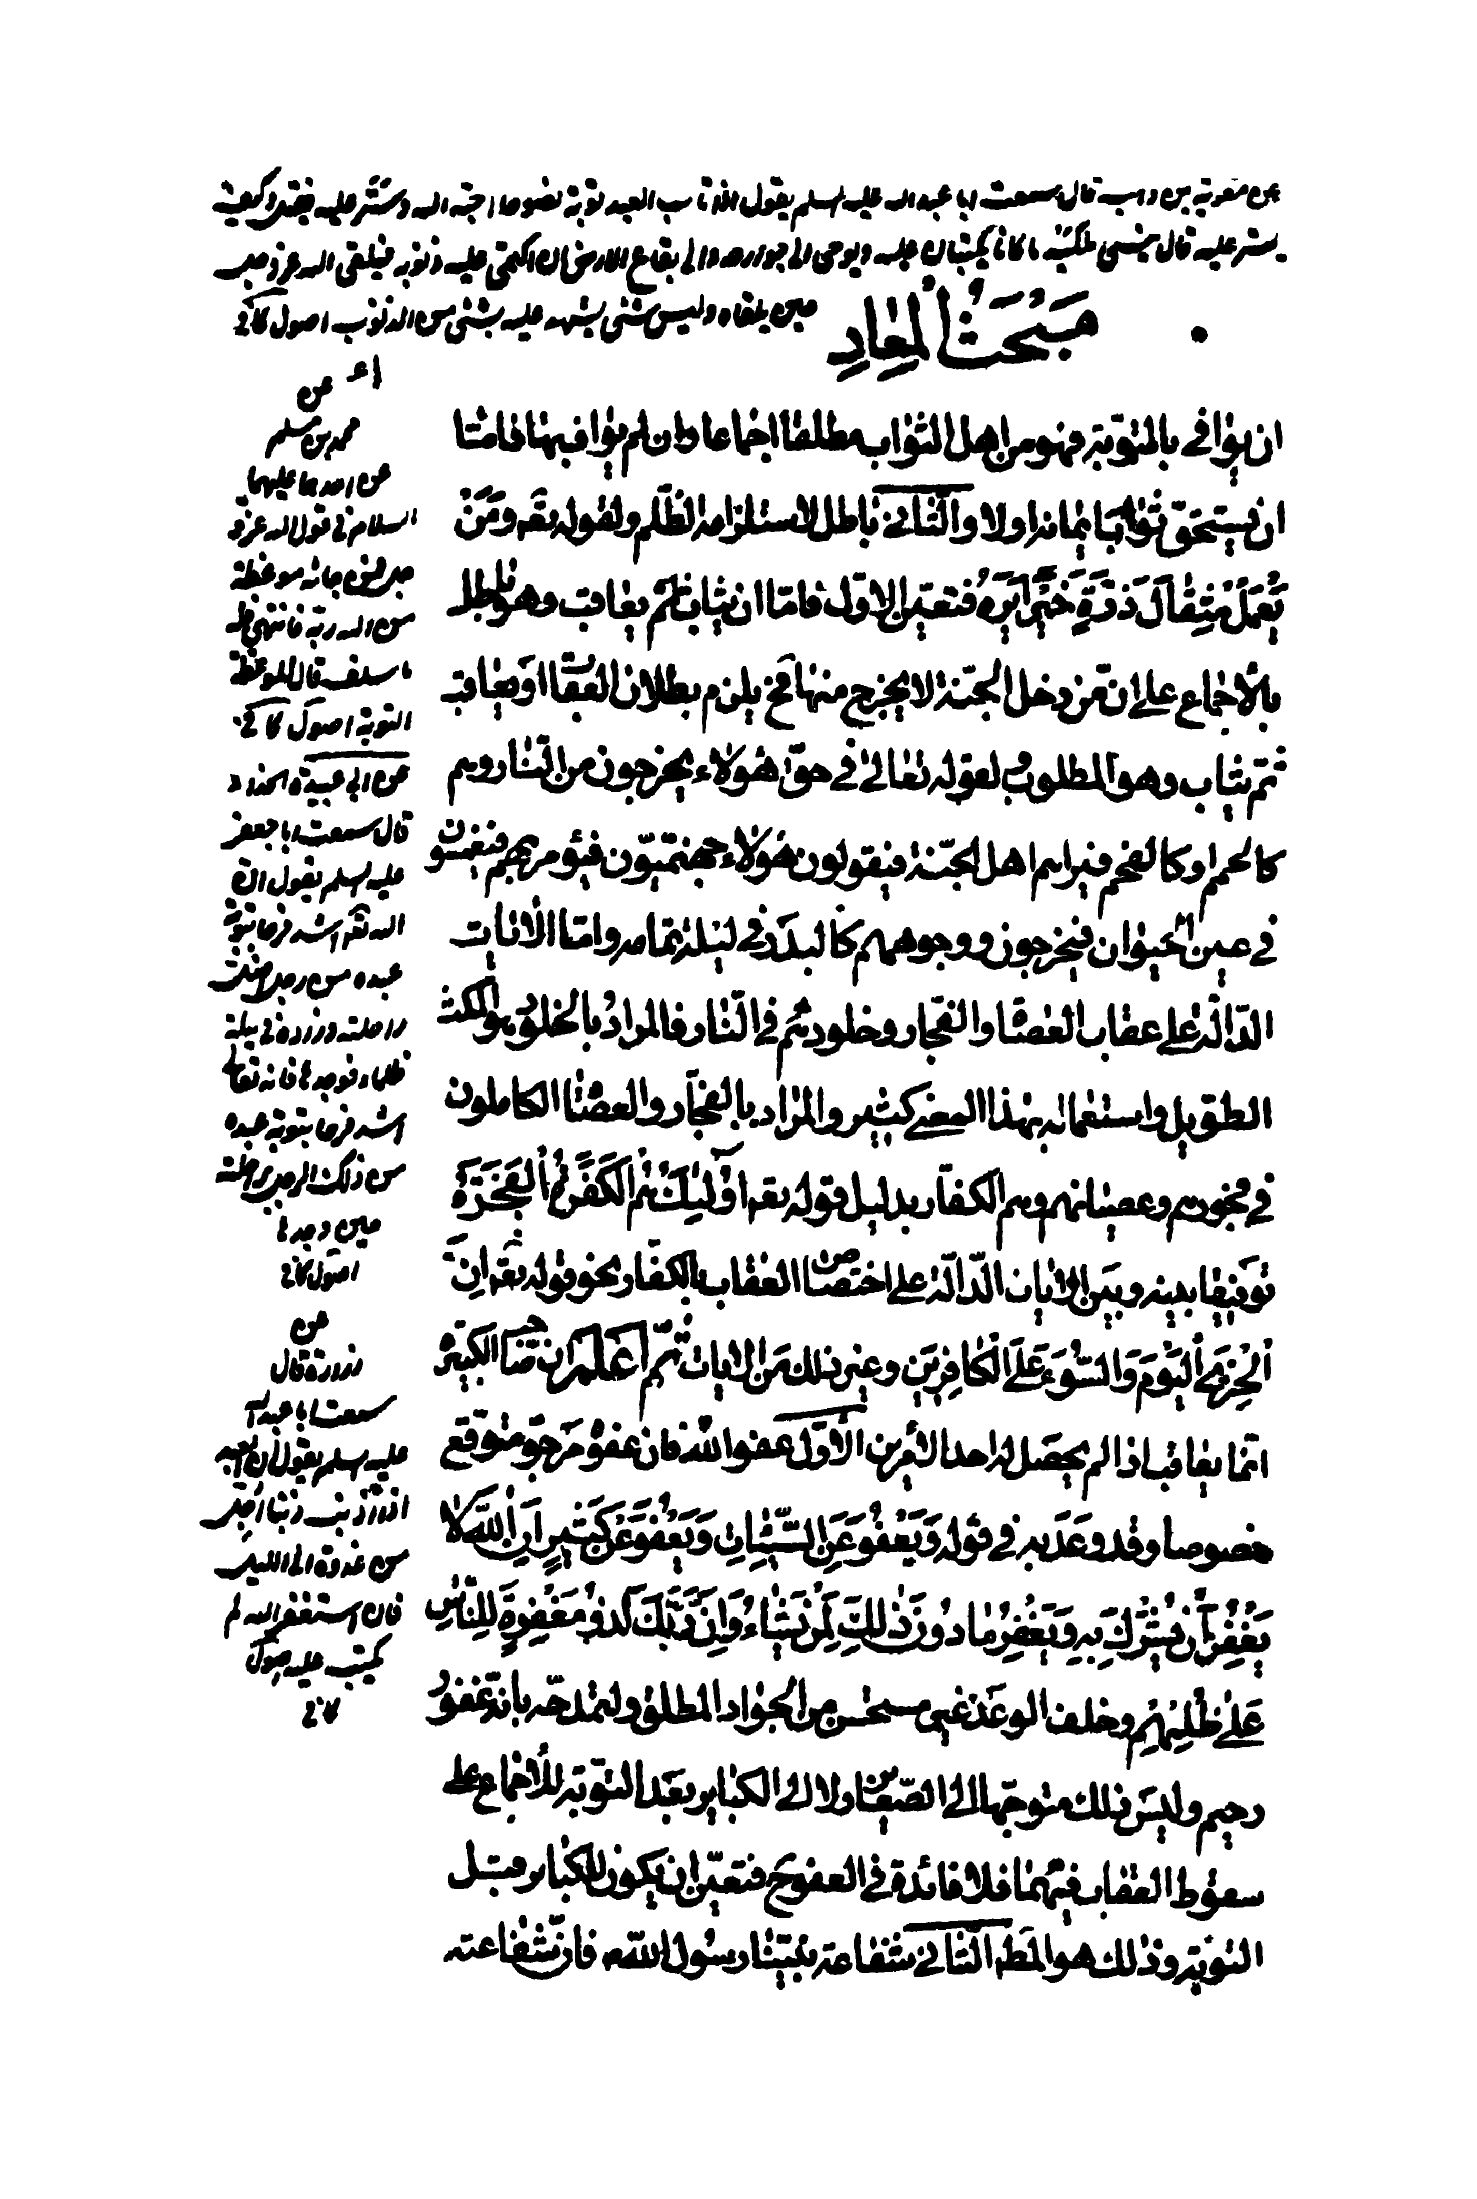 عن معوية بن وهب قال سمعت ابا عبد الله عليه السلم يقول اذا تاب العبد توبة نصوحا احبه الله وستر عليه فقلت وكيف
يستر عليه قال ينسى ملكيه ما كانا يكتبان عليه ويوحى الى جوارحه والى بقاع الارض ان اكتمى عليه ذنوبه فيلقى الله عز وجل
حين يلقاه وليس شئ يشهد عليه بشئ من الذنوب اصول كافى
مَبْحَثُ الْمَعٰادِ
ان يوافى بالتوبة فهو من اهل الثواب مطلقا اجماعا وان لم يواف بها فامّا
ان يستحقّ ثوابا بايمانه اولا والثانى باطل لاستلزامه الظّلم ولقوله تعه وَمَنْ
يَعْمَلْ مِثْقٰالَ ذَرَّةٍ خَيْراً يَرَهُ فتعيّن الاوّل فامّا ان يثاب ثم يعاقب وهو باطل
بالاجماع على انّ من دخل الجنّة لا يخرج منها فح يلزم بطلان العقاب او يعاقب
ثمّ يثاب وهو المطلوب ولقوله تعالى فى حقّ هٰؤلاء يخرجون من النّار وهم
كالحمم او كالفحم فيراهم اهل الجنّة فيقولون هٰؤلاء جهنّميّون فيؤمر بهم فيغمسون
فى عين الحيوان فيخرجون ووجوههم كالبدر فى ليلة تمامه وامّا الايات
الدّالة على عقاب العصاة والفجّار وخلودهم فى النّار فالمراد بالخلود هو المكث
الطّويل واستعماله بهذا المعنى كثير والمراد بالفجّار والعصاة الكاملون
فى فجورهم وعصيانهم وهم الكفّار بدليل قوله تعه اُولٰئِكَ هُمُ الْكَفَرَةُ الْفَجَرَةُ
توفيقا بينه وبين الايات الدّالّة على اختصاص العقاب بالكفّار نحو قوله تعه اِنَّ
الْخِزْىَ الْيَوْمَ وَالسُّوءَ عَلَى الْكٰافِرِينَ وغير ذلك من الايات ثُمّ اعلم ان صاحب الكبيرة
انّما يعاقب اذا لم يحصل له احد الامرين الاوّل عفو اللّه فان عفوه مرجوّ متوقّع
خصوصا وقد وعد به فى قوله وَيَعْفُو عَنِ السَّيِّئٰاتِ وَيَعْفُو عَنْ كَثِيرٍ اِنَّ اللّٰهَ لاٰ
يَغْفِرُ اَنْ يُشْرَكَ بِهِ وَيَغْفِرُ مٰا دُونَ ذٰلِكَ لِمَنْ يَشٰاءُ وَاِنَّ رَبَّكَ لَذُو مَغْفِرَةٍ لِلنّٰاسِ
عَلىٰ ظُلْمِهِمْ وخلف الوعد غير مستحسن من الجواد المطلق ولتمدّحه بانّه غفور
رحيم وليس ذلك متوجّها الى الصّغاير ولا الى الكباير بعد التّوبة للاجماع على
سقوط العقاب فيهما فلا فائدة فى العفو ح فتعيّن ان يكون للكباير قبل
التّوبة وذلك هو المط الثّانى شفاعة نبيّنا رسول اللّه فانّ شفاعته
عن
محمد بن مسلم
عن احدهما عليهما
السلام فى قول الله عز و
جل فمن جائه موعظة
من الله ربه فانتهى فله
ما سلف قال الموعظة
التوبة اصول كافى
عن ابى عبيدة الحذاء
قال سمعت ابا جعفر
عليه السلم يقول ان
الله تعه اشد فرحا بتوبة
عبده من رجل اضلت
راحلته وزاده فى ليلة
ظلماء فوجدها فالله تعالى
اشد فرحا بتوبة عبده
من ذلك الرجل براحلته
حين وجدها
اصول كافى
عن
زرارة قال
سمعت ابا عبد الله
عليه السلم يقول ان العبد
اذا اذنب ذنبا اُجّل
من غدوة الى الليل
فان استغفر الله لم
يكتب عليه اصول
كافى